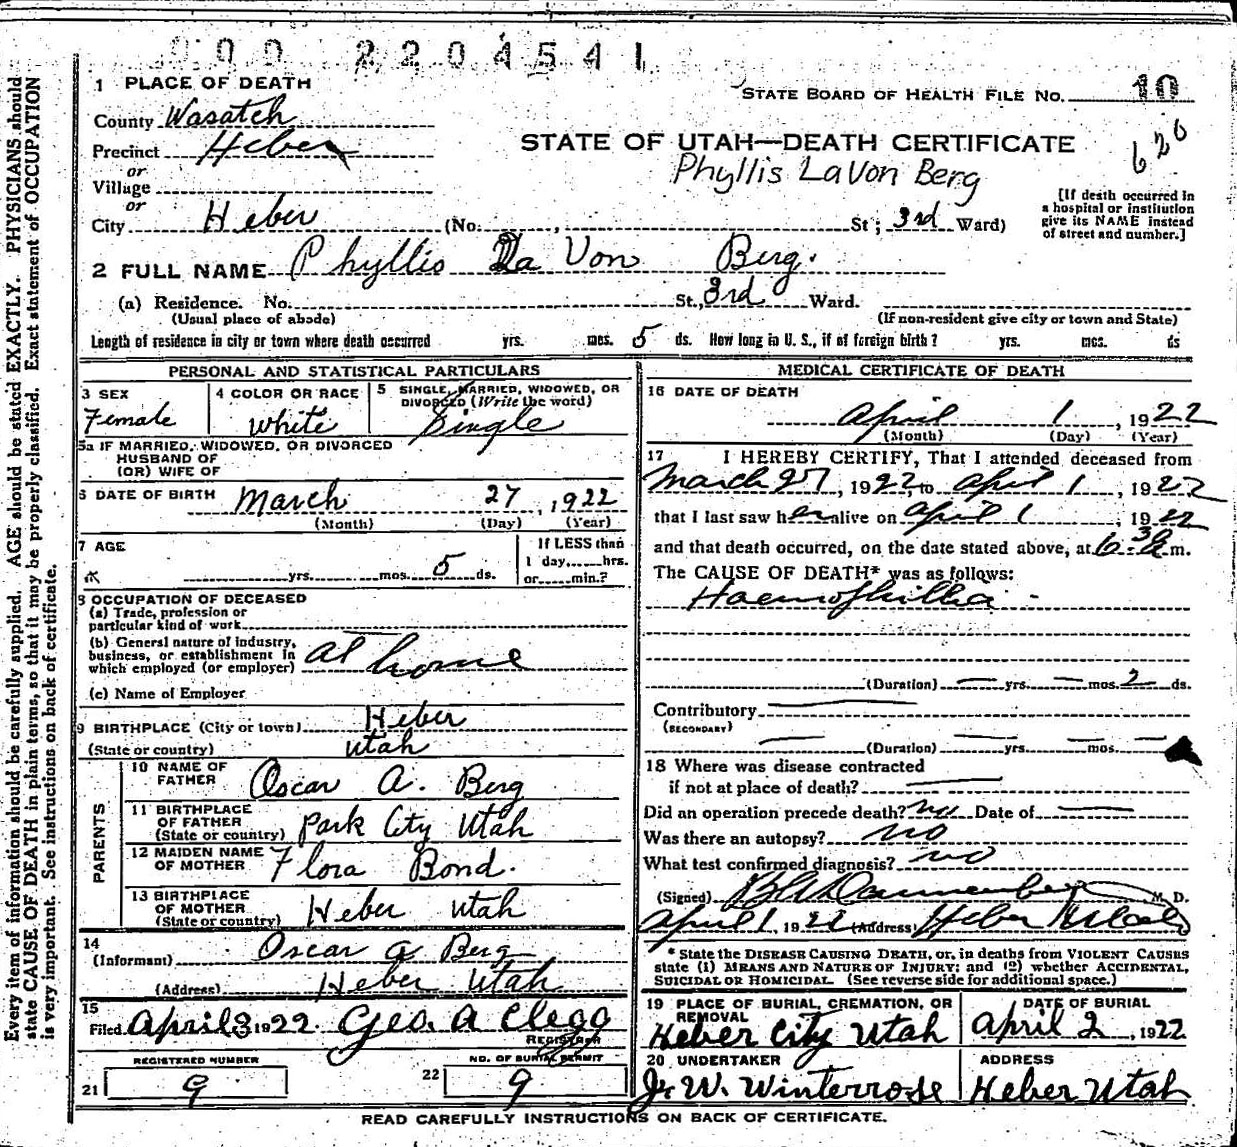 000 2204541
1 PLACE OF DEATH
STATE BOARD OF HEALTH FILE NO. 10
County Wasatch
626
Precinct Heber
STATE OF UTAH—DEATH CERTIFICATE
or
Phyllis LaVon Berg
Village
or
City Heber (No. , St; 3rd Ward)
[If death occurred in
a hospital or institution
give its NAME instead
of street and number.]
2 FULL NAME Phyllis La Von Berg.
(a) Residence. No. St., 3rd Ward.
(Usual place of abode) (If non-resident give city or town and State)
Length of residence in city or town where death occurred yrs. mos. 5 ds. How long in U. S., if of foreign birth? yrs. mos. ds
PERSONAL AND STATISTICAL PARTICULARS
3 SEX
Female
4 COLOR OR RACE
White
5 SINGLE, MARRIED, WIDOWED, OR
DIVORCED (Write the word)
Single
5a IF MARRIED, WIDOWED, OR DIVORCED
HUSBAND OF
(OR) WIFE OF
6 DATE OF BIRTH March 27, 1922
(Month) (Day) (Year)
7 AGE
yrs. mos. 5 ds.
If LESS than
1 day, hrs.
or min.?
8 OCCUPATION OF DECEASED
(a) Trade, profession or
particular kind of work
(b) General nature of industry,
business, or establishment in
which employed (or employer) at home
(c) Name of Employer
9 BIRTHPLACE (City or town) Heber
(State or country) Utah
PARENTS
10 NAME OF
FATHER Oscar A. Berg
11 BIRTHPLACE
OF FATHER
(State or country) Park City Utah
12 MAIDEN NAME
OF MOTHER Flora Bond.
13 BIRTHPLACE
OF MOTHER
(State or country) Heber Utah
14
(Informant) Oscar A Berg
(Address) Heber Utah
15
Filed April 3 1922. Geo. A Clegg
REGISTRAR
REGISTERED NUMBER
21 9
NO. OF BURIAL PERMIT
22 9
MEDICAL CERTIFICATE OF DEATH
16 DATE OF DEATH
April 1, 1922
(Month) (Day) (Year)
17 I HEREBY CERTIFY, That I attended deceased from
March 27, 1922, to April 1, 1922
that I last saw her alive on April 1, 1922
and that death occurred, on the date stated above, at 6:30 m.
The CAUSE OF DEATH* was as follows:
Haemophillia
(Duration) — yrs. — mos. 2 ds.
Contributory
(SECONDARY)
(Duration) yrs. mos.
18 Where was disease contracted
if not at place of death?
Did an operation precede death? no Date of
Was there an autopsy? no
What test confirmed diagnosis? no
(Signed) M. D.
April 1, 1922 (Address) Heber Utah
* State the DISEASE CAUSING DEATH, or, in deaths from VIOLENT CAUSES
state (1) MEANS AND NATURE OF INJURY; and (2) whether ACCIDENTAL,
SUICIDAL OR HOMICIDAL. (See reverse side for additional space.)
19 PLACE OF BURIAL, CREMATION, OR
REMOVAL
Heber City Utah
DATE OF BURIAL
April 2, 1922
20 UNDERTAKER
J. W. Winterrose
ADDRESS
Heber Utah
READ CAREFULLY INSTRUCTIONS ON BACK OF CERTIFICATE.
Every item of information should be carefully supplied. AGE should be stated EXACTLY. PHYSICIANS should
state CAUSE OF DEATH in plain terms, so that it may be properly classified. Exact statement of OCCUPATION
is very important. See instructions on back of certificate.